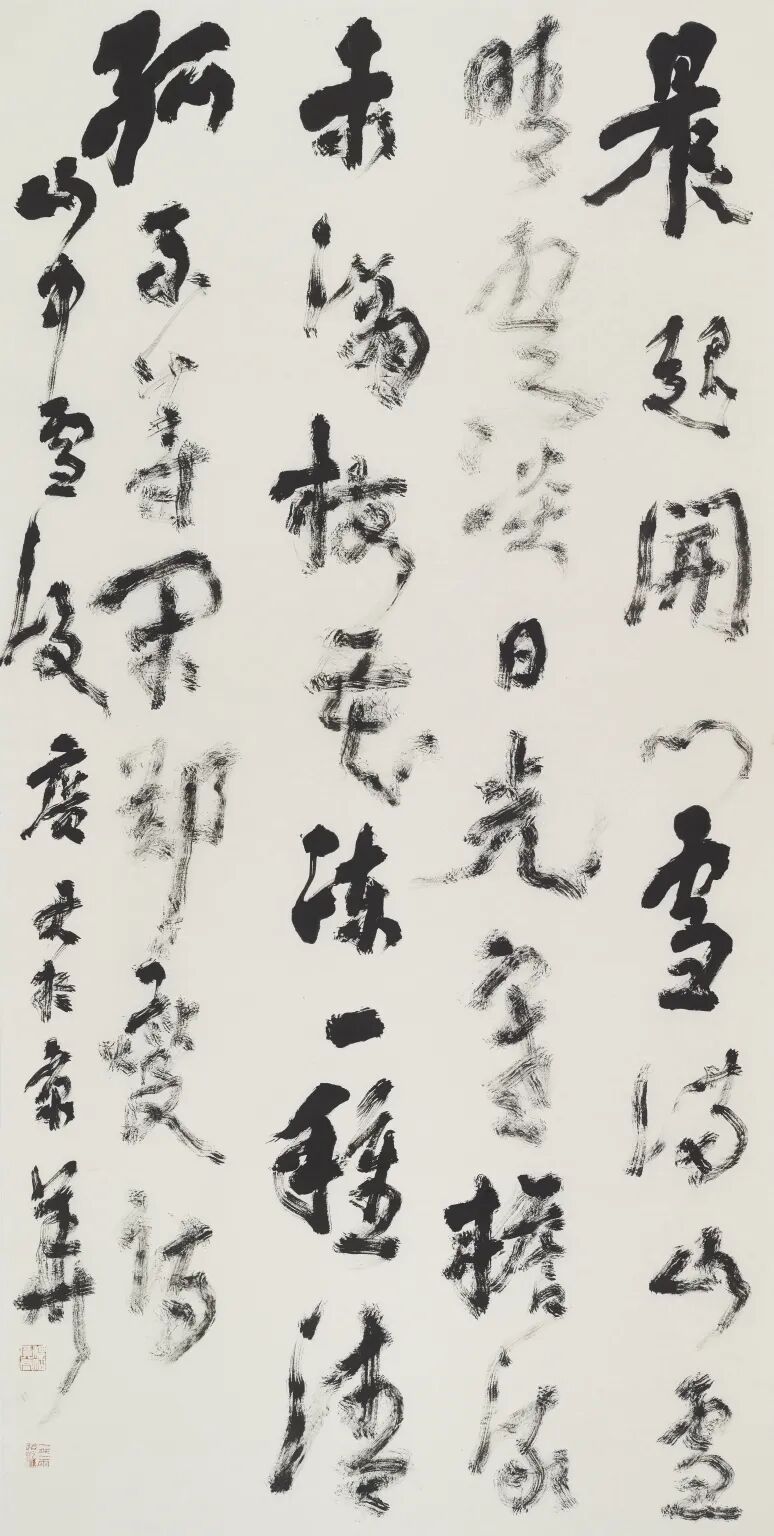 晨起開門雪滿山雪
晴雲淡日光寒檐流
未滴梅花凍一種清
孤不等閑鄭燮詩
山中雪後於京華